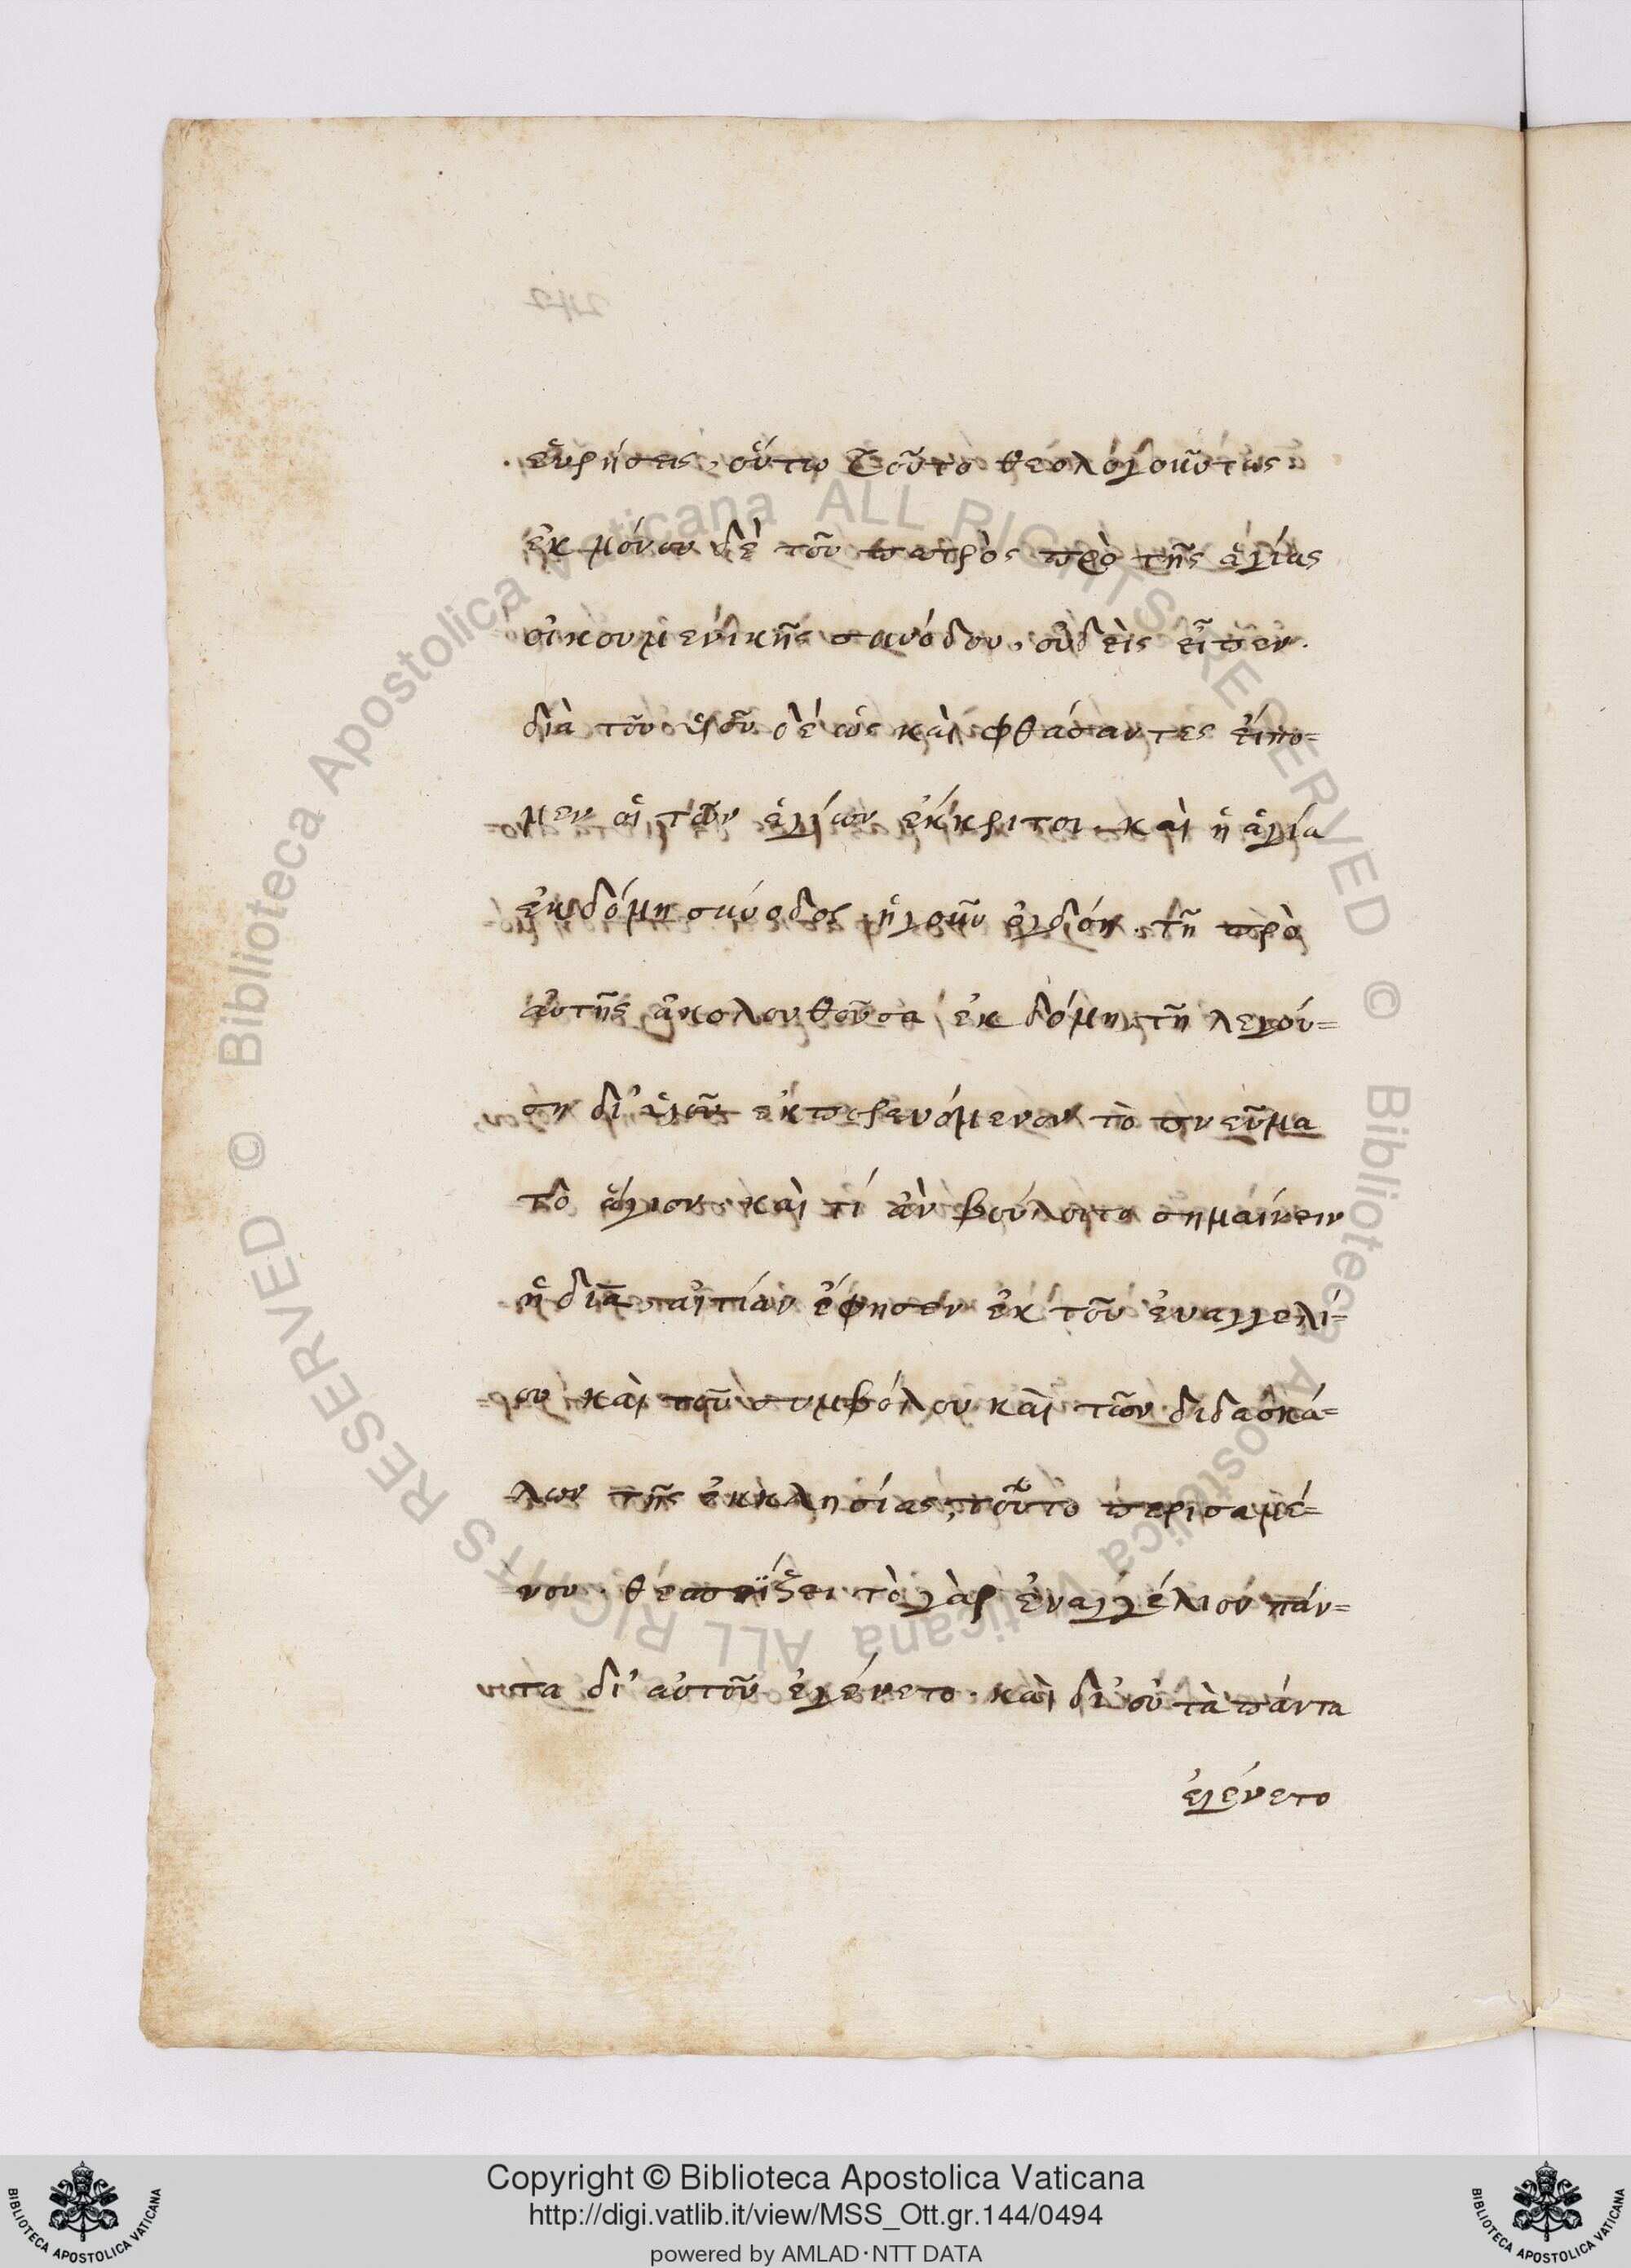 εὑρήσεις, οὕτω τοῦτο θεολογοῦντας
ἐκ μόνου δὲ τοῦ πατρὸς πρὸ τῆς ἁγίας
οἰκουμενικῆς συνόδου, οὐδεὶς εἶπεν.
διὰ τοῦ υἱοῦ δέ ὡς καὶ φθάσαντες εἴπο=
μεν οἱ τῶν ἁγίων ἔκκριτοι. καὶ ἡ ἁγία
ἑβδόμη σύνοδος ἡγοῦν ὀγδόη. τῇ πρὸ
αὐτῆς ἀκολουθοῦσα ἑβδόμη τῇ λεγού=
ση δι' υἱοῦ ἐκπορευόμενον τὸ πνεῦμα
τὸ ἅγιον. καὶ τί ἂν βούλοιτο σημαίνειν
ἡ διὰ αἰτίαν ἔφησεν ἐκ τοῦ ἐυαγγελί=
ου καὶ τοῦ συμβόλου καὶ τῶν διδασκά=
λων τῆς ἐκκλησίας, τοῦτο
νου. τὸ γὰρ ἐυαγγέλιον πάν=
τα δι' αὐτοῦ ἐγένετο. καὶ δι' οὗ τὰ πάντα
ἐγένετο
© Biblioteca Apostolica Vaticana ALL RIGHTS RESERVED © Biblioteca Apostolica Vaticana ALL RIGHTS RESERVED
Copyright © Biblioteca Apostolica Vaticana
http://digi.vatlib.it/view/MSS_Ott.gr.144/0494
powered by AMLAD·NTT DATA
BIBLIOTECA APOSTOLICA VATICANA
BIBLIOTECA APOSTOLICA VATICANA